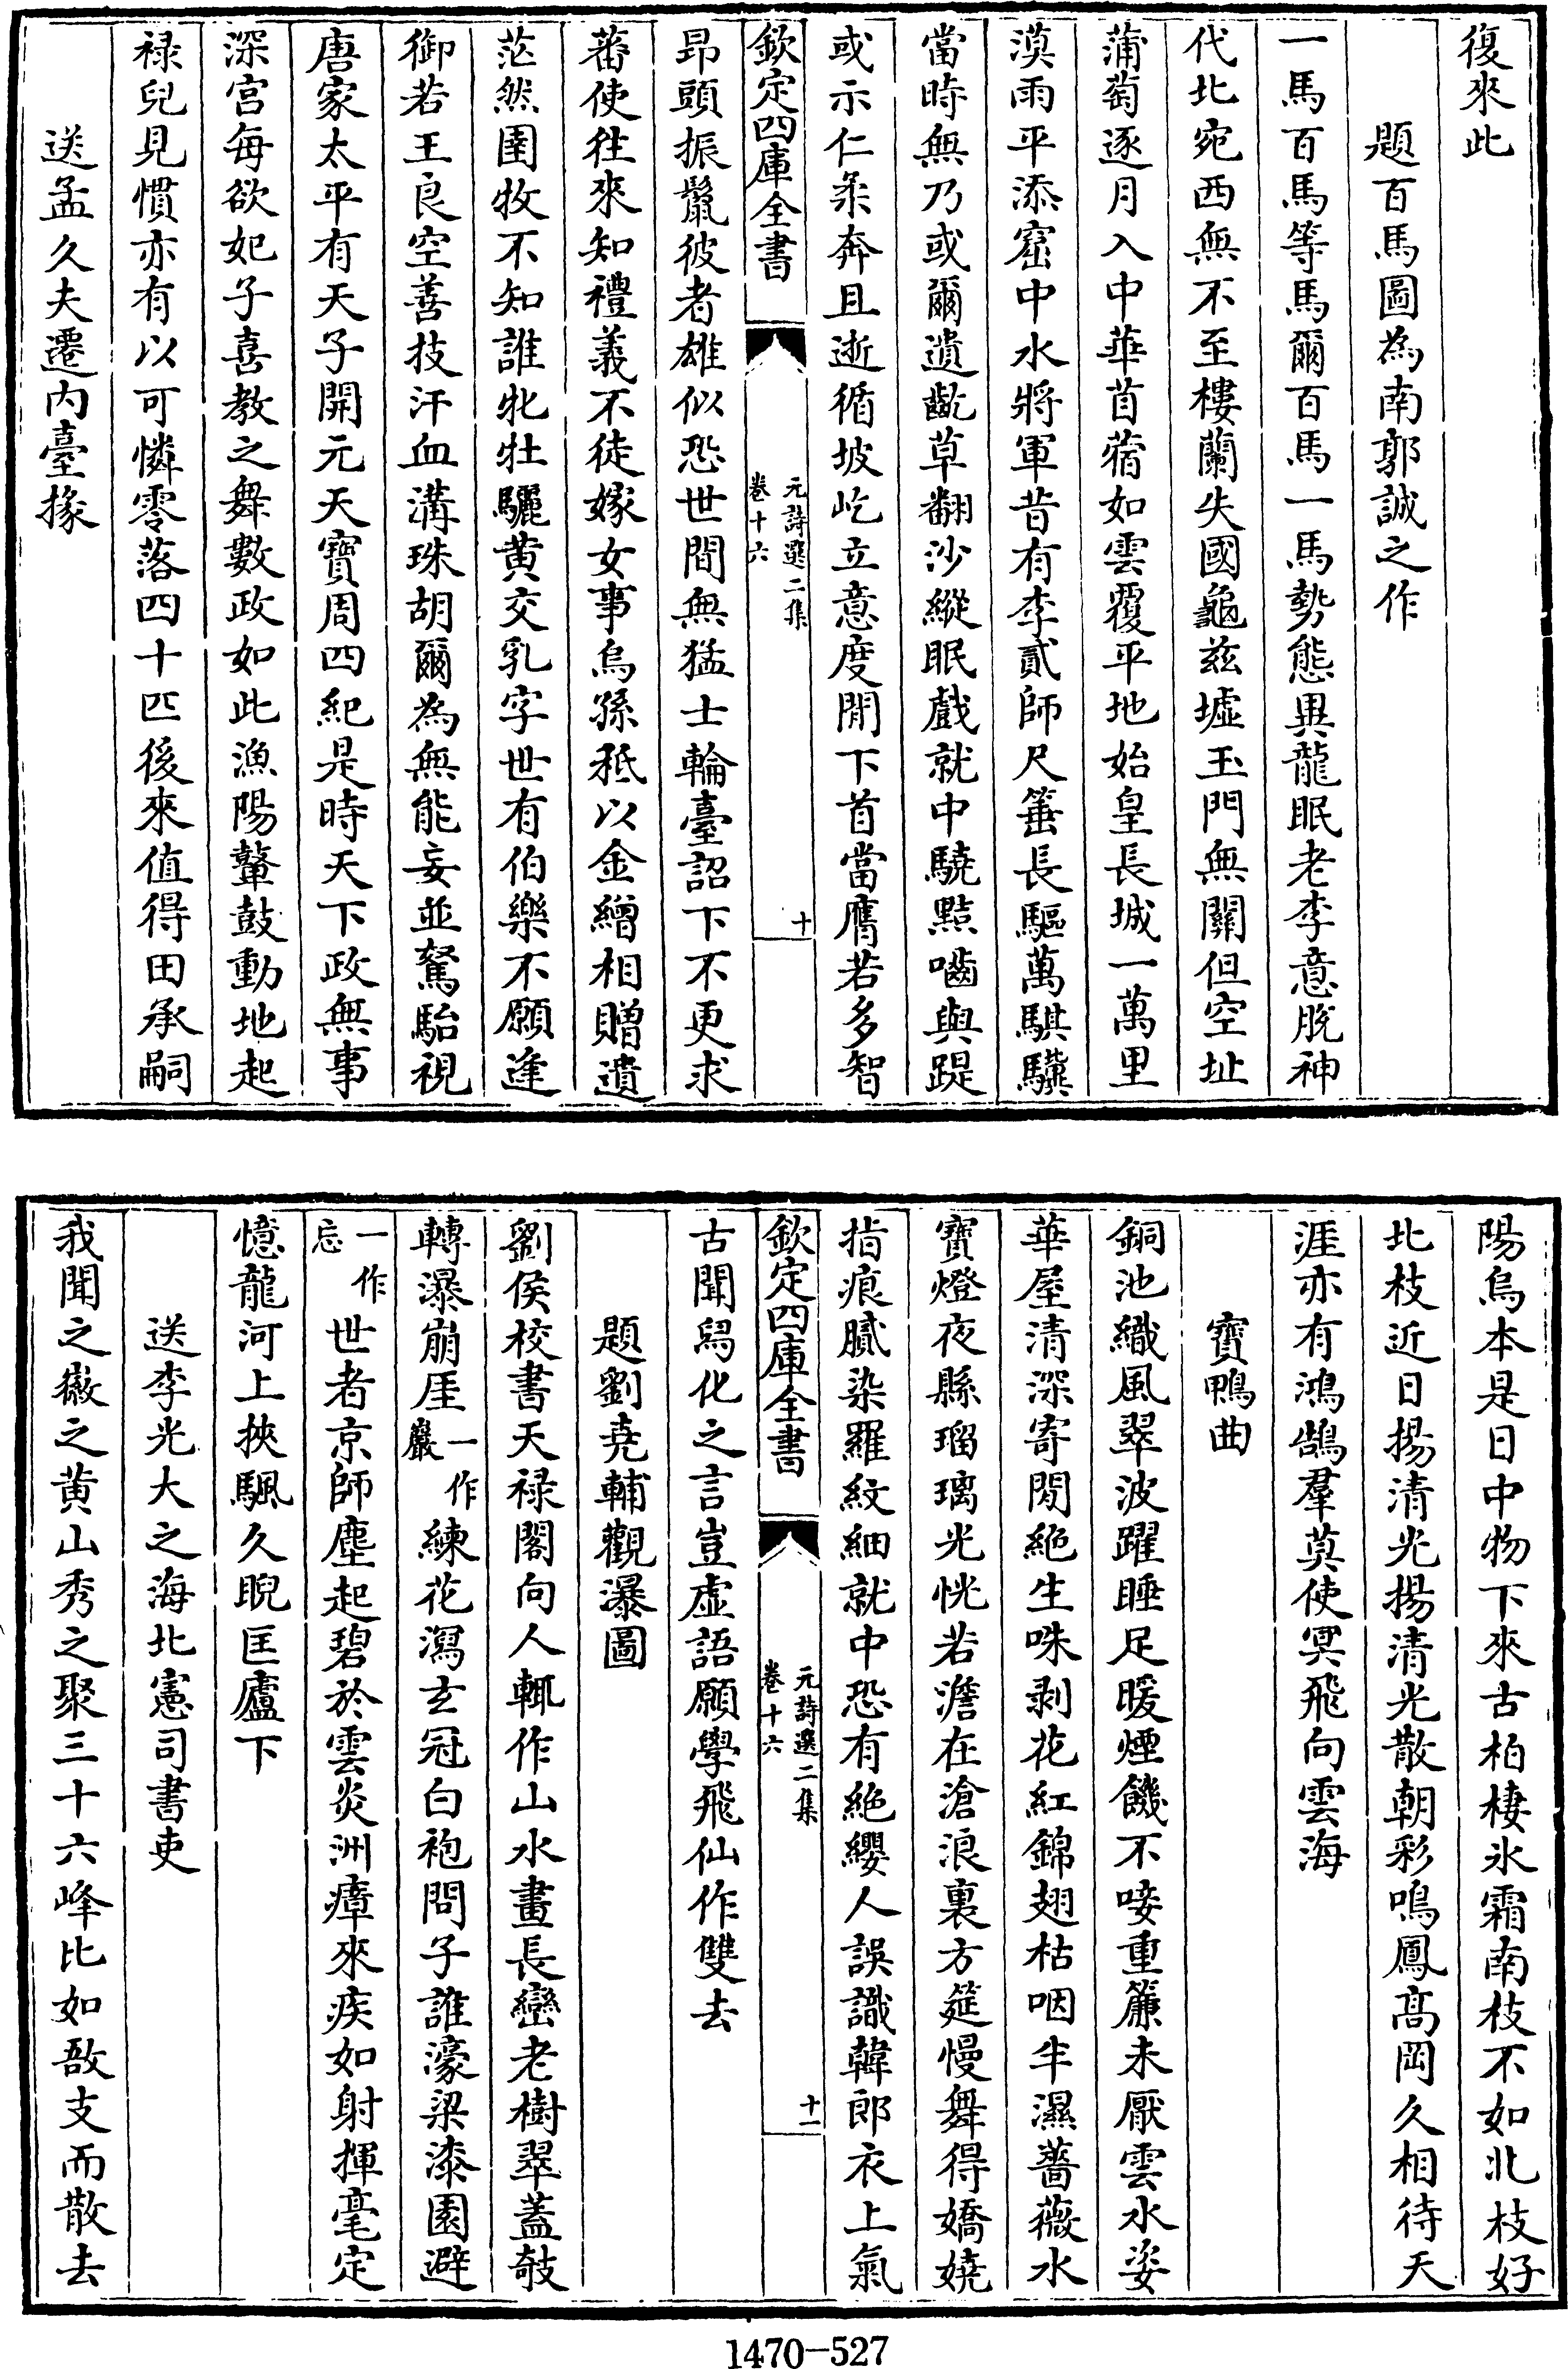 復來此
題百馬圖為南郭誠之作
一馬百馬等馬爾百馬一馬勢態異龍眠老李意脫神
代北宛西無不至樓蘭失國龜兹墟玉門無關但空址
蒲萄逐月入中華苜蓿如雲覆平地始皇長城一萬里
漠雨平添窟中水將軍昔有李貳師尺箠長驅萬騏驥
當時無乃或爾遺齕草翻沙縱眠戲就中驍點嚙與踶
或示仁柔奔且逝循坡屹立意度閒下首當膺若多智
欽定四庫全書
元詩選二集
卷十六
十
昂頭振鬣彼者雄似恐世間無猛士輪臺詔下不更求
蕃使往來知禮義不徒嫁女事烏孫秪以金繒相贈遺
茫然圉牧不知誰牝牡驪黄交乳字世有伯樂不願逢
御若王良空善技汗血溝珠胡爾為無能妄並駑駘視
唐家太平有天子開元天寶周四紀是時天下政無事
深宫每欲妃子喜教之舞數政如此漁陽鼙鼓動地起
禄兒見慣亦有以可憐零落四十匹後來值得田承嗣
送孟久夫遷内臺掾
陽烏本是日中物下來古柏棲氷霜南枝不如北枝好
北枝近日揚清光揚清光散朝彩鳴鳳髙岡久相待天
涯亦有鴻鵠羣莫使冥飛向雲海
寶鴨曲
銅池織風翠波躍睡足暖煙饑不唼重簾未厭雲水姿
華屋清深寄閒絶生咮剥花紅錦翅枯咽半濕薔薇水
寶燈夜縣瑠璃光恍若澹在滄浪裏方筵慢舞得嬌嬈
指痕膩染羅紋細就中恐有絶纓人誤識韓郎衣上氣
欽定四庫全書
元詩選二集
卷十六
十一
古聞舄化之言豈虚語願學飛仙作雙去
題劉堯輔觀瀑圖
劉侯校書天禄閣向人輒作山水畫長巒老樹翠蓋攲
轉瀑崩厓一作巖練花瀉玄冠白袍問子誰濠梁漆園避
一作忘世者京師塵起碧於雲炎洲瘴來疾如射揮毫定
憶龍河上挾颿久睨匡廬下
送李光大之海北憲司書吏
我聞之徽之黄山秀之聚三十六峰比如敔支而散去
1470-527